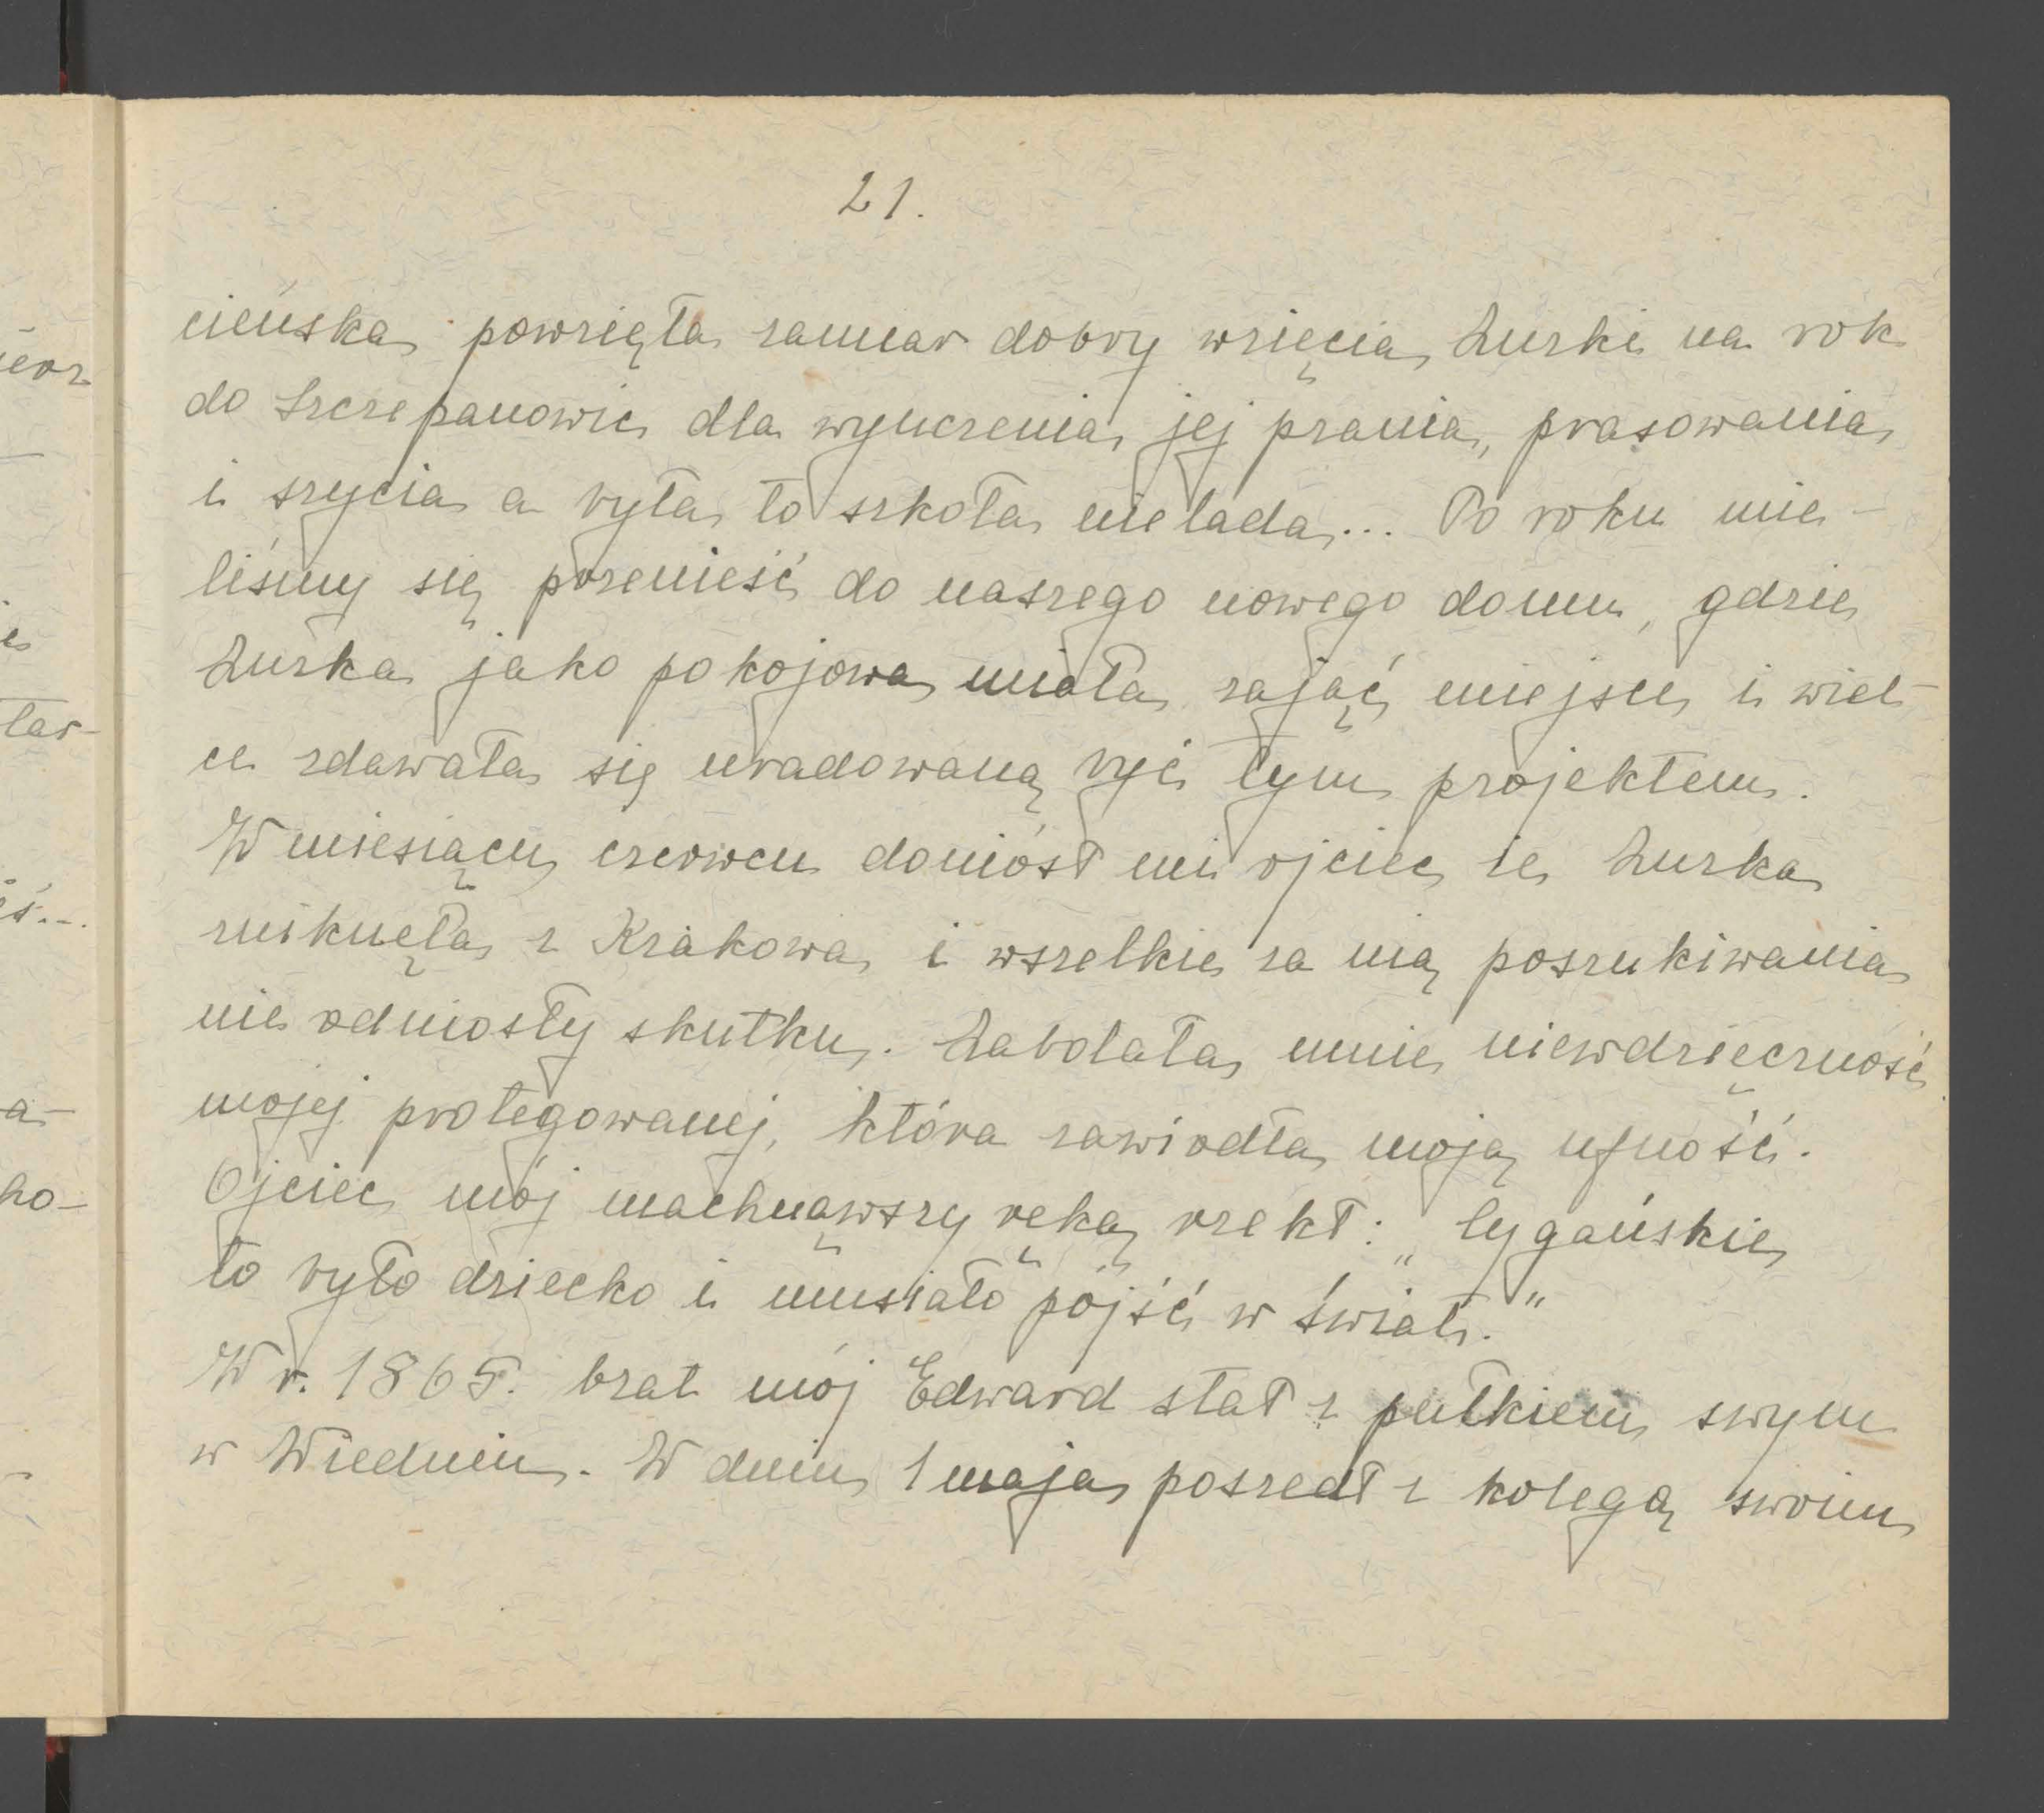 21.
cieńska powzięła zamiar dobry wzięcia Zuzki na rok
do Szczepanowic dla wyuczenia jej prania, prasowania
i szycia a była to szkoła nielada... Po roku mie-
liśmy się przenieść do naszego nowego domu, gdzie
Zuzka jako pokojowa miała zająć miejsce i wiel-
ce zdawała się uradowaną być tym projektem.
W miesiącu czerwcu doniósł mi ojciec że Zuzka
zniknęła z Krakowa i wszelkie za nią poszukiwania
nie odniosły skutku. Zabolała mnie niewdzięczność
mojej protegowanej, która zawiodła moją ufność.
Ojciec mój machnąwszy ręką rzekł: „Cygańskie
to było dziecko i musiało pójść w świat."
W r. 1865. brat mój Edward stał z pułkiem swym
w Wiedniu. W dniu 1 maja poszedł z kolegą swoim